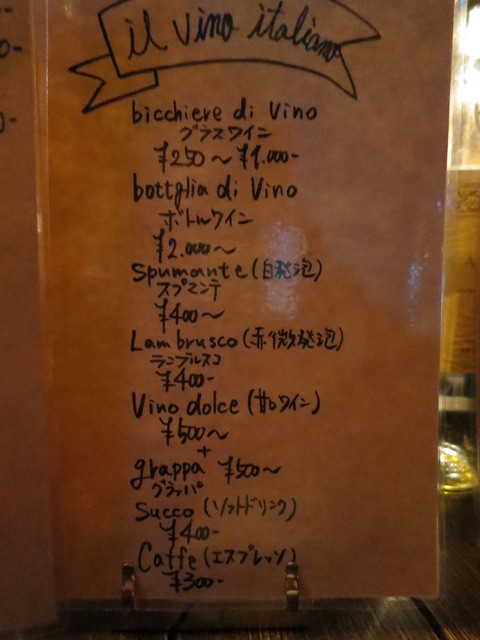 il vino italiano
bicchiere di Vino
グラスワイン
¥250〜¥1.000-
bottglia di Vino
ボトルワイン
¥2.000〜
Spumante(白発泡)
スプマンテ
¥400〜
Lambrusco(赤微発泡)
ランブルスコ
¥400-
Vino dolce (甘口ワイン)
¥500〜
+
grappa ¥500〜
グラッパ
Succo (ソフトドリンク)
¥400-
Caffe(エスプレッソ)
¥300-